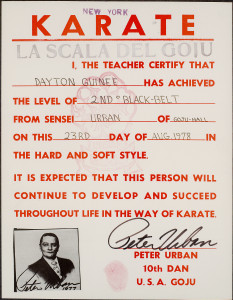 NEW YORK
KARATE
LA SCALA DEL GOJU
I, THE TEACHER CERTIFY THAT
DAYTON GUINEE HAS ACHIEVED
THE LEVEL OF 2ND° BLACK-BELT
FROM SENSEI URBAN OF GOJU-HALL
ON THIS 23RD DAY OF AUG. 1978 IN
THE HARD AND SOFT STYLE.
IT IS EXPECTED THAT THIS PERSON WILL
CONTINUE TO DEVELOP AND SUCCEED
THROUGHOUT LIFE IN THE WAY OF KARATE.
Peter Urban
Peter Urban
PETER URBAN
10th DAN
U. S. A. GOJU